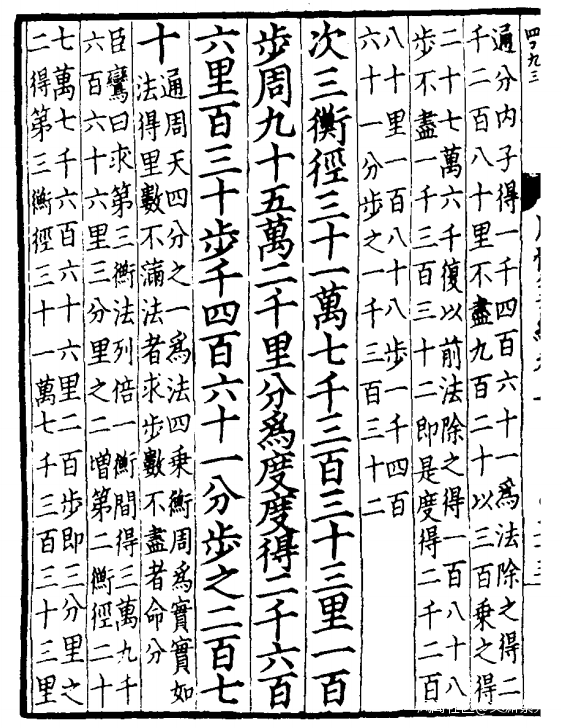 通分内子得一千四百六十一爲法除之得二
千二百八十里不盡九百二十以三百乘之得
二十七萬六千復以前法除之得一百八十八
步不盡一千三百三十二即是度得二千二百
八十里一百八十八步一千四百
六十一分步之一千三百三十二
次三衡徑三十一萬七千三百三十三里一百
步周九十五萬二千里分爲度度得二千六百
六里百三十步千四百六十一分步之二百七
十
通周天四分之一爲法四乘衡周爲實實如
法得里數不滿法者求步數不盡者命分
臣鸞曰求第三衡法列倍一衡間得三萬九千
六百六十六里三分里之二增第二衡徑二十
七萬七千六百六十六里二百步即三分里之
二得第三衡徑三十一萬七千三百三十三里